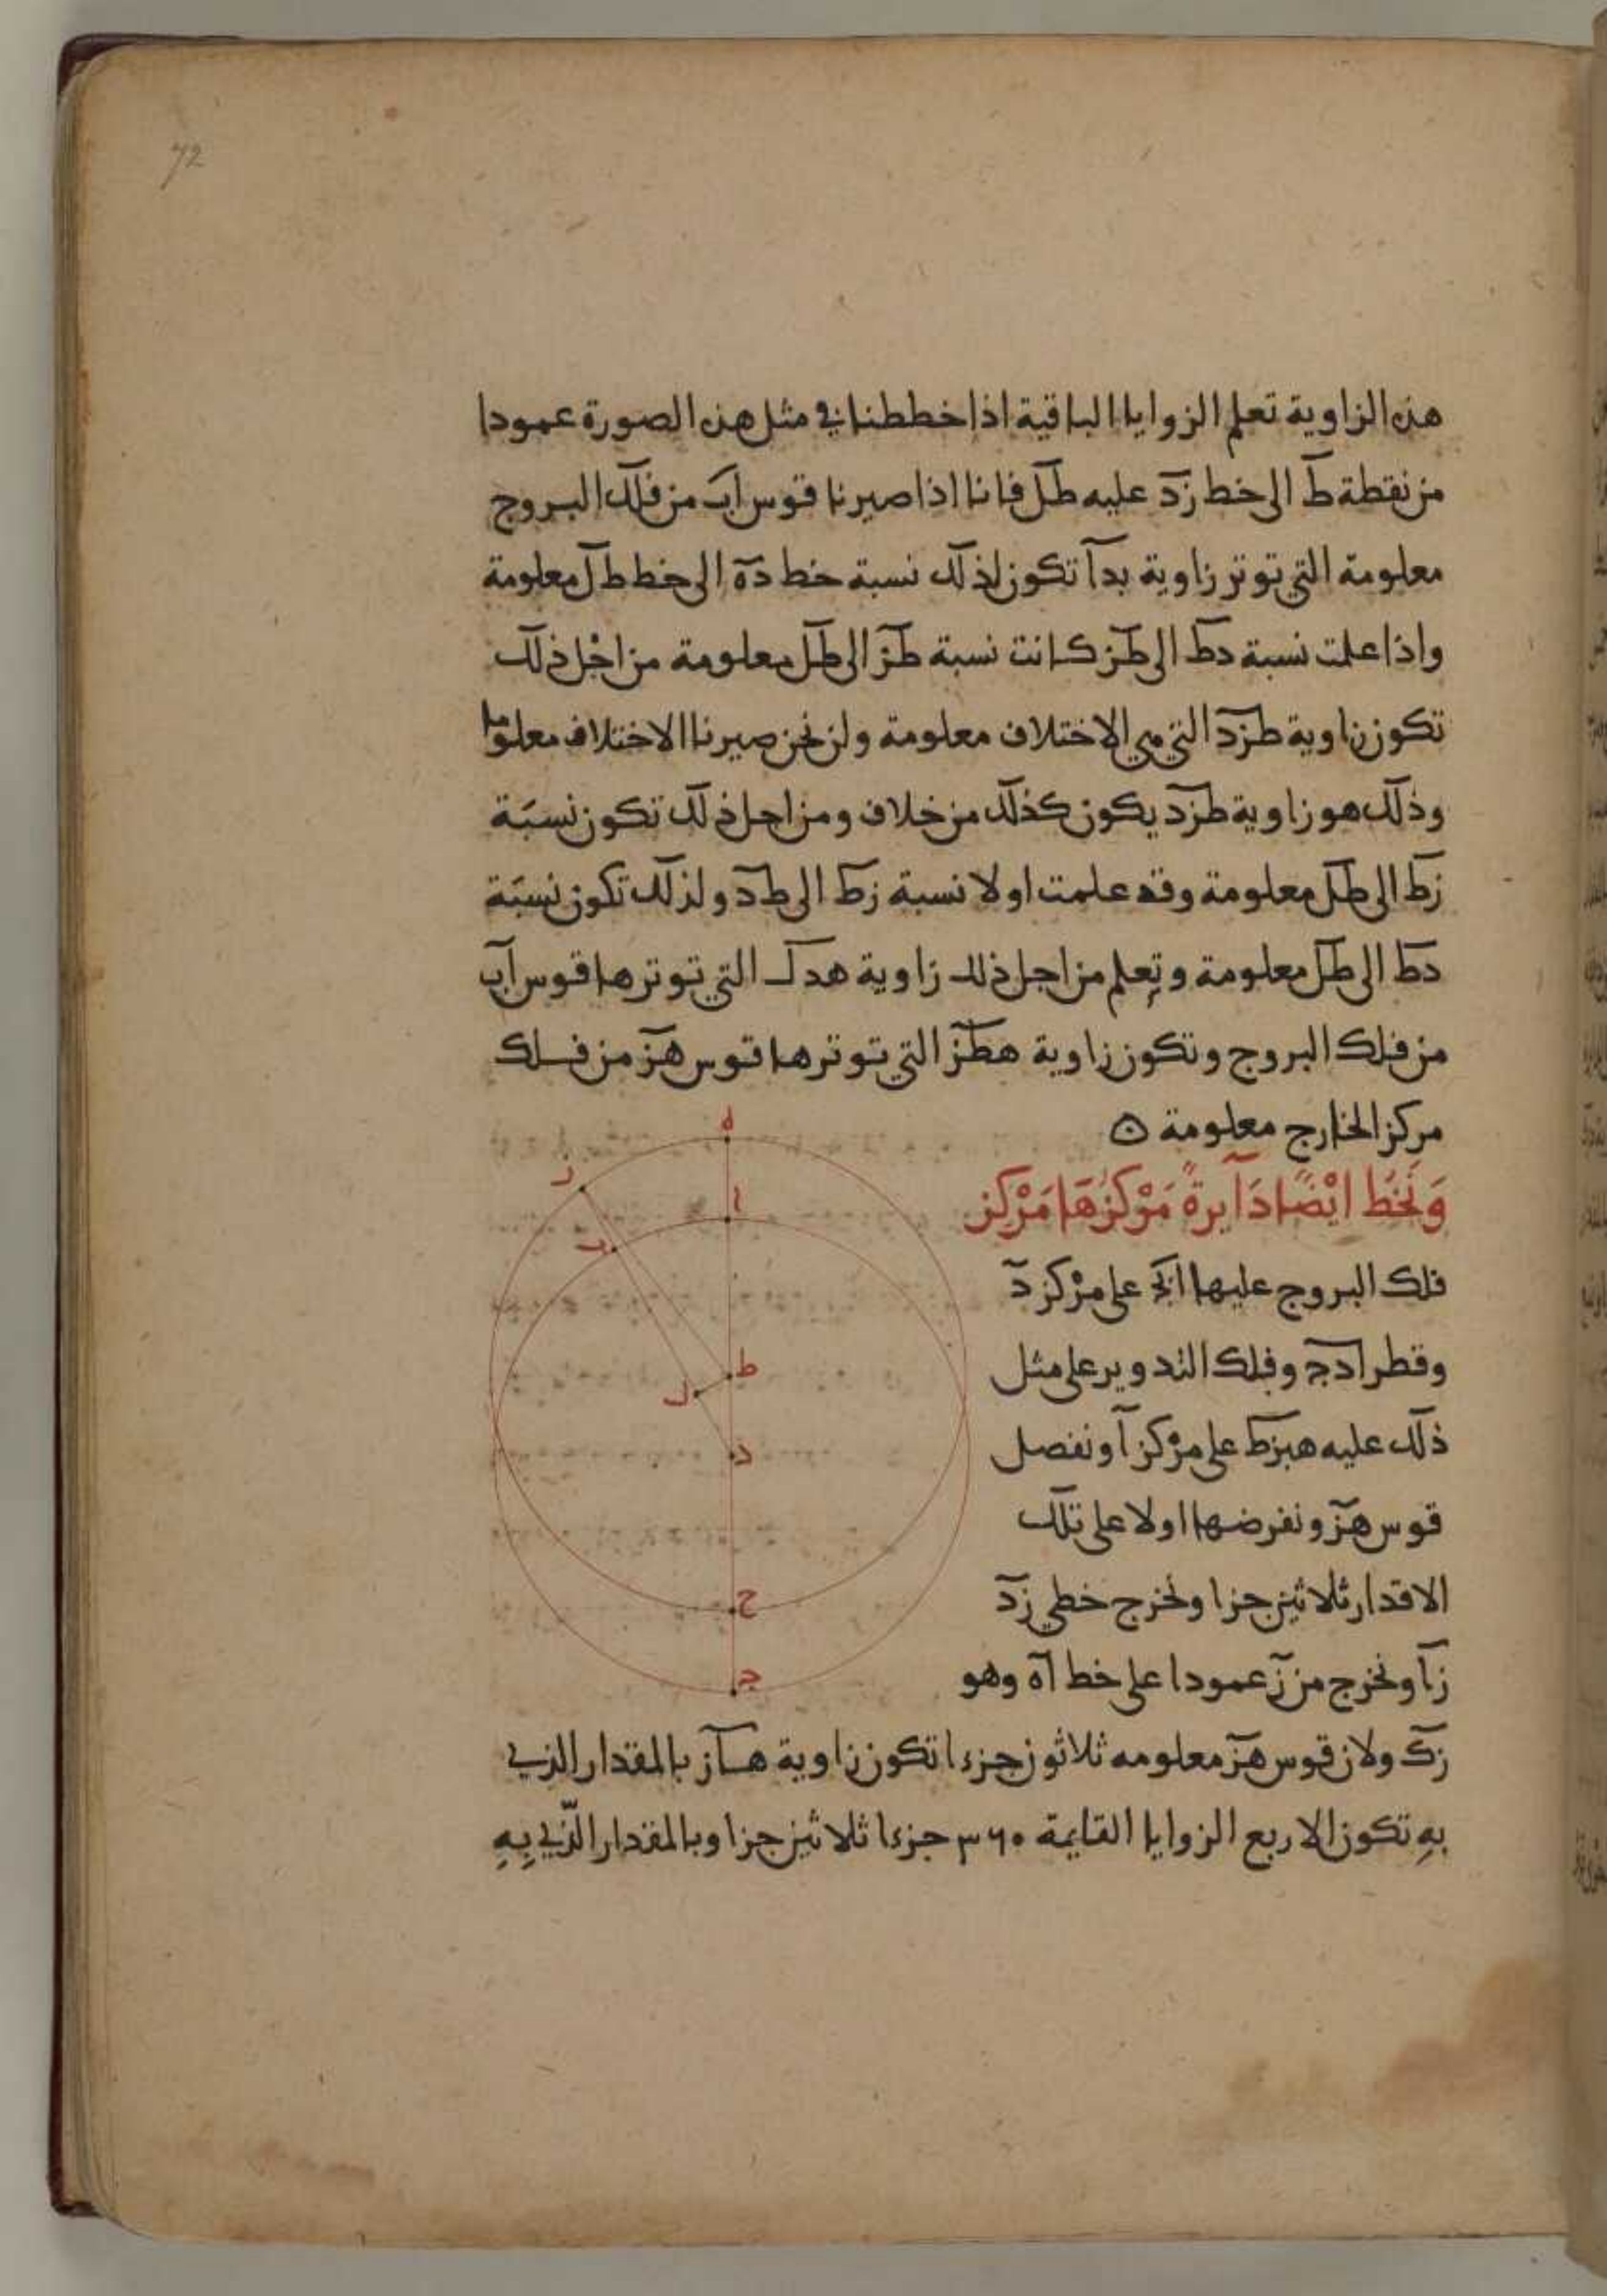 72
هذه الزاوية تعلم الزوايا الباقية اذا خططنا في مثل هذه الصورة عمودا
من نقطة ط الى خط زد عليه طل فانا اذا صيرنا قوس اب من فلك البروج
معلومة التي توتر زاوية بدا تكون لذلك نسبة خط دة الى خط طل معلومة
واذا علمت نسبة دط الى طز كانت نسبة طز الى طل معلومة من اجل ذلك
تكون زاوية طزد التي هي الاختلاف معلومة ولن نحن صيرنا الاختلاف معلوما
وذلك هو زاوية طزد يكون كذلك من خلاف ومن اجل ذلك تكون نسبة
زط الى طل معلومة وقد علمت اولا نسبة زط الى طد ولذلك تكون نسبة
دط الى طل معلومة وتعلم من اجل ذلك زاوية هدك التي توترها قوس اب
من فلك البروج وتكون زاوية هطز التي توترها قوس هز من فلك
مركز الخارج معلومة ه
وَنَخُط ايْضًا دَآيرةً مَرْكزُهَا مَرْكز
فلك البروج عليها ابج على مرْكز د
وقطر ادج وفلك التدوير على مثل
ذلك عليه هبزط على مرْكز ا ونفصل
قوس هز ونفرضها اولا على تلك
الاقدار ثلاثين جزا ونخرج خطي زد
زا ونخرج من ز عمودا على خط اه وهو
زك ولان قوس هز معلومه ثلاثون جزءا تكون زاوية هاز بالمقدار الذي
بهِ تكون الاربع الزوايا القايمة ٣٦٠ جزءا ثلاثين جزا وبالمقدار الّذي بِهِ
ه
ر
ا
ب
ط
ل
د
ح
ج